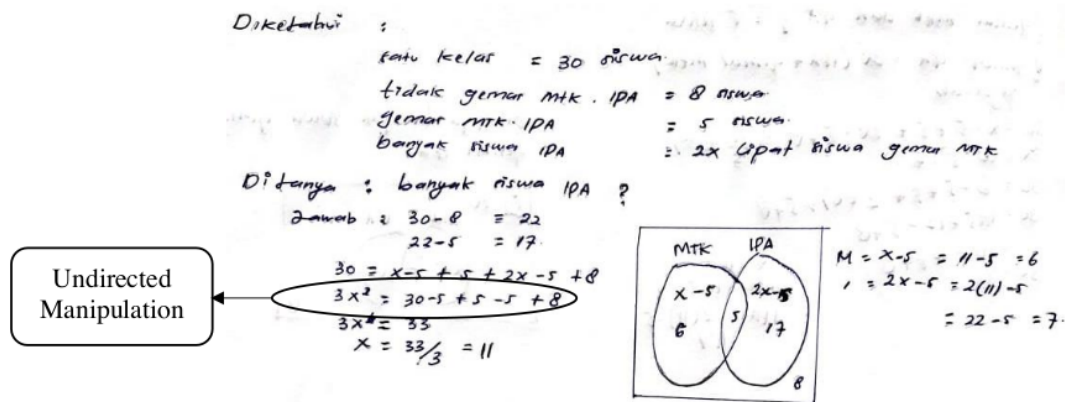 Diketahui :
satu kelas = 30 siswa
tidak gemar MTK. IPA = 8 siswa
gemar MTK. IPA = 5 siswa
banyak siswa IPA = 2x lipat siswa gemar MTK
Ditanya : banyak siswa IPA ?
Jawab : 30-8 = 22
22-5 = 17.
30 = x-5 + 5 + 2x -5 +8
3x² = 30-5 +5 -5 +8
3x = 33
x = 33/3 = 11
Undirected
Manipulation
MTK IPA
x-5 2x-5
5
6 17
8
M = x-5 = 11-5 = 6
= 2x-5 = 2(11)-5
= 22-5 = 7.